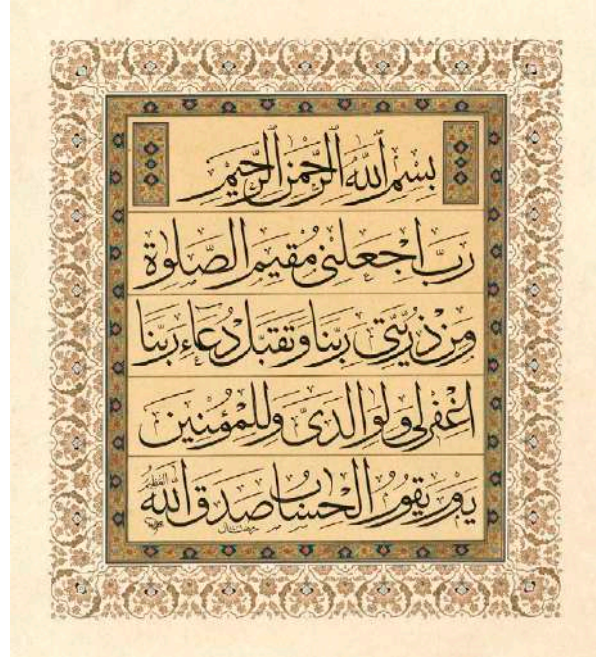 بسم الله الرحمن الرحيم
رب اجعلنى مقيم الصلوة
ومن ذريتى ربنا وتقبل دعاء ربنا
اغفرلى ولوالدى وللمؤمنين
يوم يقوم الحساب صدق الله العظيم